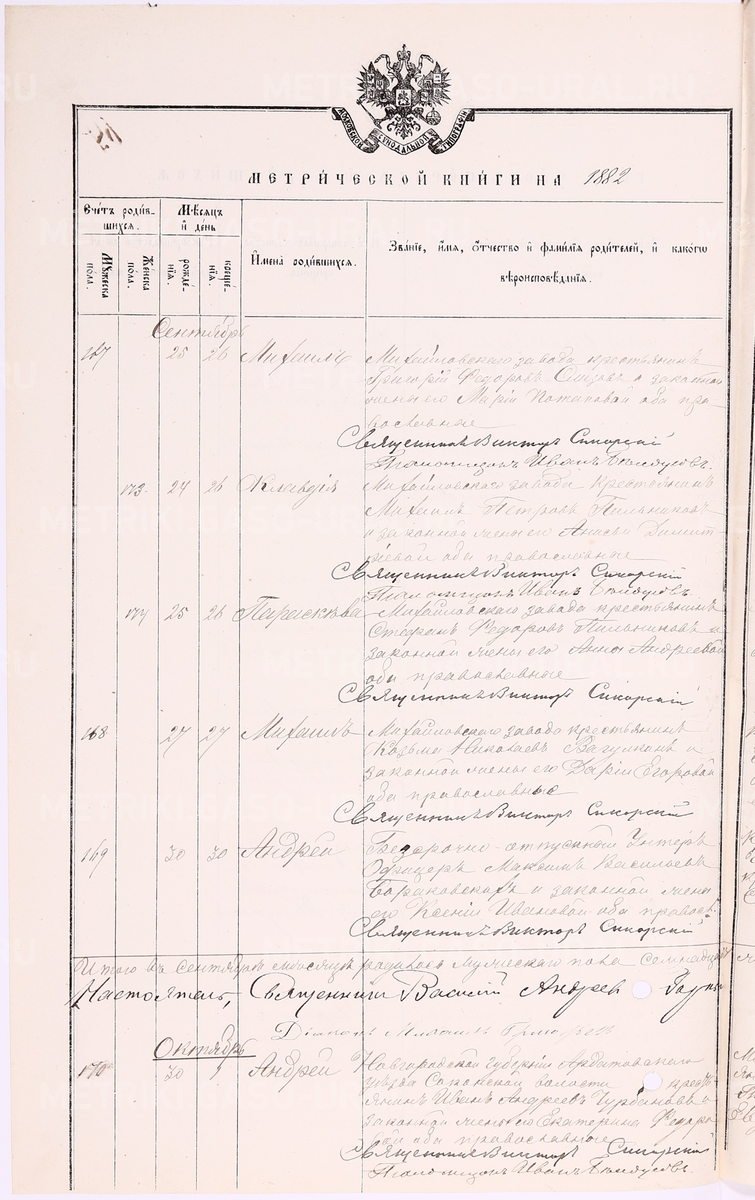 МОСКОВСКОЙ СѴНОДАЛЬНОЙ ТИПОГРАФІИ
МЕТРИ́ЧЕСКОЙ КНИ́ГИ НА 1882
Сче́тъ роди́вшихся.
Мѣ́сяцъ и҆ де́нь
И҆мена̀ роди́вшихся.
Зва́ніе, и҆́мѧ, ѻ҆́тчество и҆ фами́лїѧ роди́телей, и҆ како́гѡ вѣроисповѣ́данїѧ.
Мꙋ́жеска по́ла.
Же́нска по́ла.
рожде́нїѧ.
креще́нїѧ.
Сентябрь
167 25 26 Михаилъ Михайловскаго завода крестьянинъ
Григорій Федоровъ и законной
жены его Марія Потаповой оба пра-
вославные
Священникъ Викторъ Сикорскій
Псаломщикъ Иванъ
173. 24 26 Клавдія Михайловскаго завода крестьянинъ
Михаилъ Петровъ Пильниковъ
и законной жены его Анисьи Димит-
ріевой оба православные
Священникъ Викторъ Сикорскій
Псаломщикъ Иванъ
174 25 26 Параскева Михайловскаго завода крестьянинъ
Стефанъ Федоровъ Пильниковъ и
законной жены его Анна Андреевой
оба православные
Священникъ Викторъ Сикорскій
168 27 27 Михаилъ Михайловскаго завода крестьянинъ
Козьма Николаевъ и
законной жены его Дарія Егоровой
оба православные
Священникъ Викторъ Сикорскій
169 30 30 Андрей Безсрочно-отпускный Унтеръ
Офицеръ Максимъ Василіевъ
Барановскихъ и законной жены
его Ксенія Ивановой оба правосл.
Священникъ Викторъ Сикорскій
Итого въ сентябрѣ мѣсяцѣ родилось мужескаго пола
Настоятель, Священникъ Василій Андреев
Діаконъ Михаилъ
Октябрь
170 30 1 Андрей Новгородской губерніи Ардатовскаго
уѣзда волости крестья-
янинъ Иванъ Андреевъ и
законной жены его Екатерина Федоро-
вой оба православные
Священникъ Викторъ Сикорскій
Псаломщикъ Иванъ